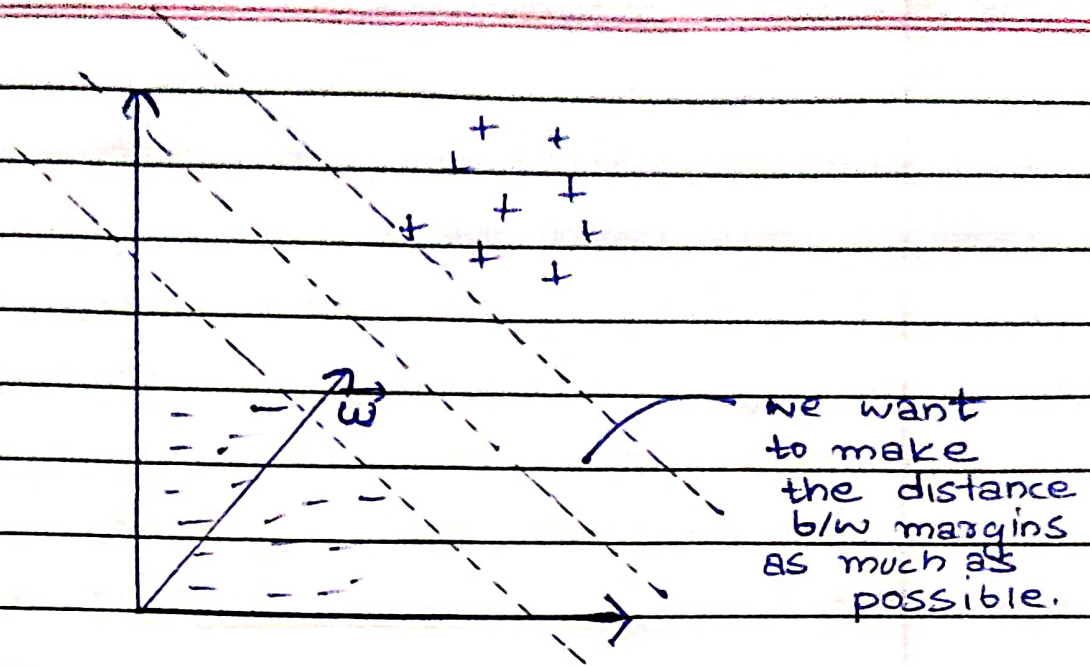 ω
we want
to make
the distance
b/w margins
as much as
possible.